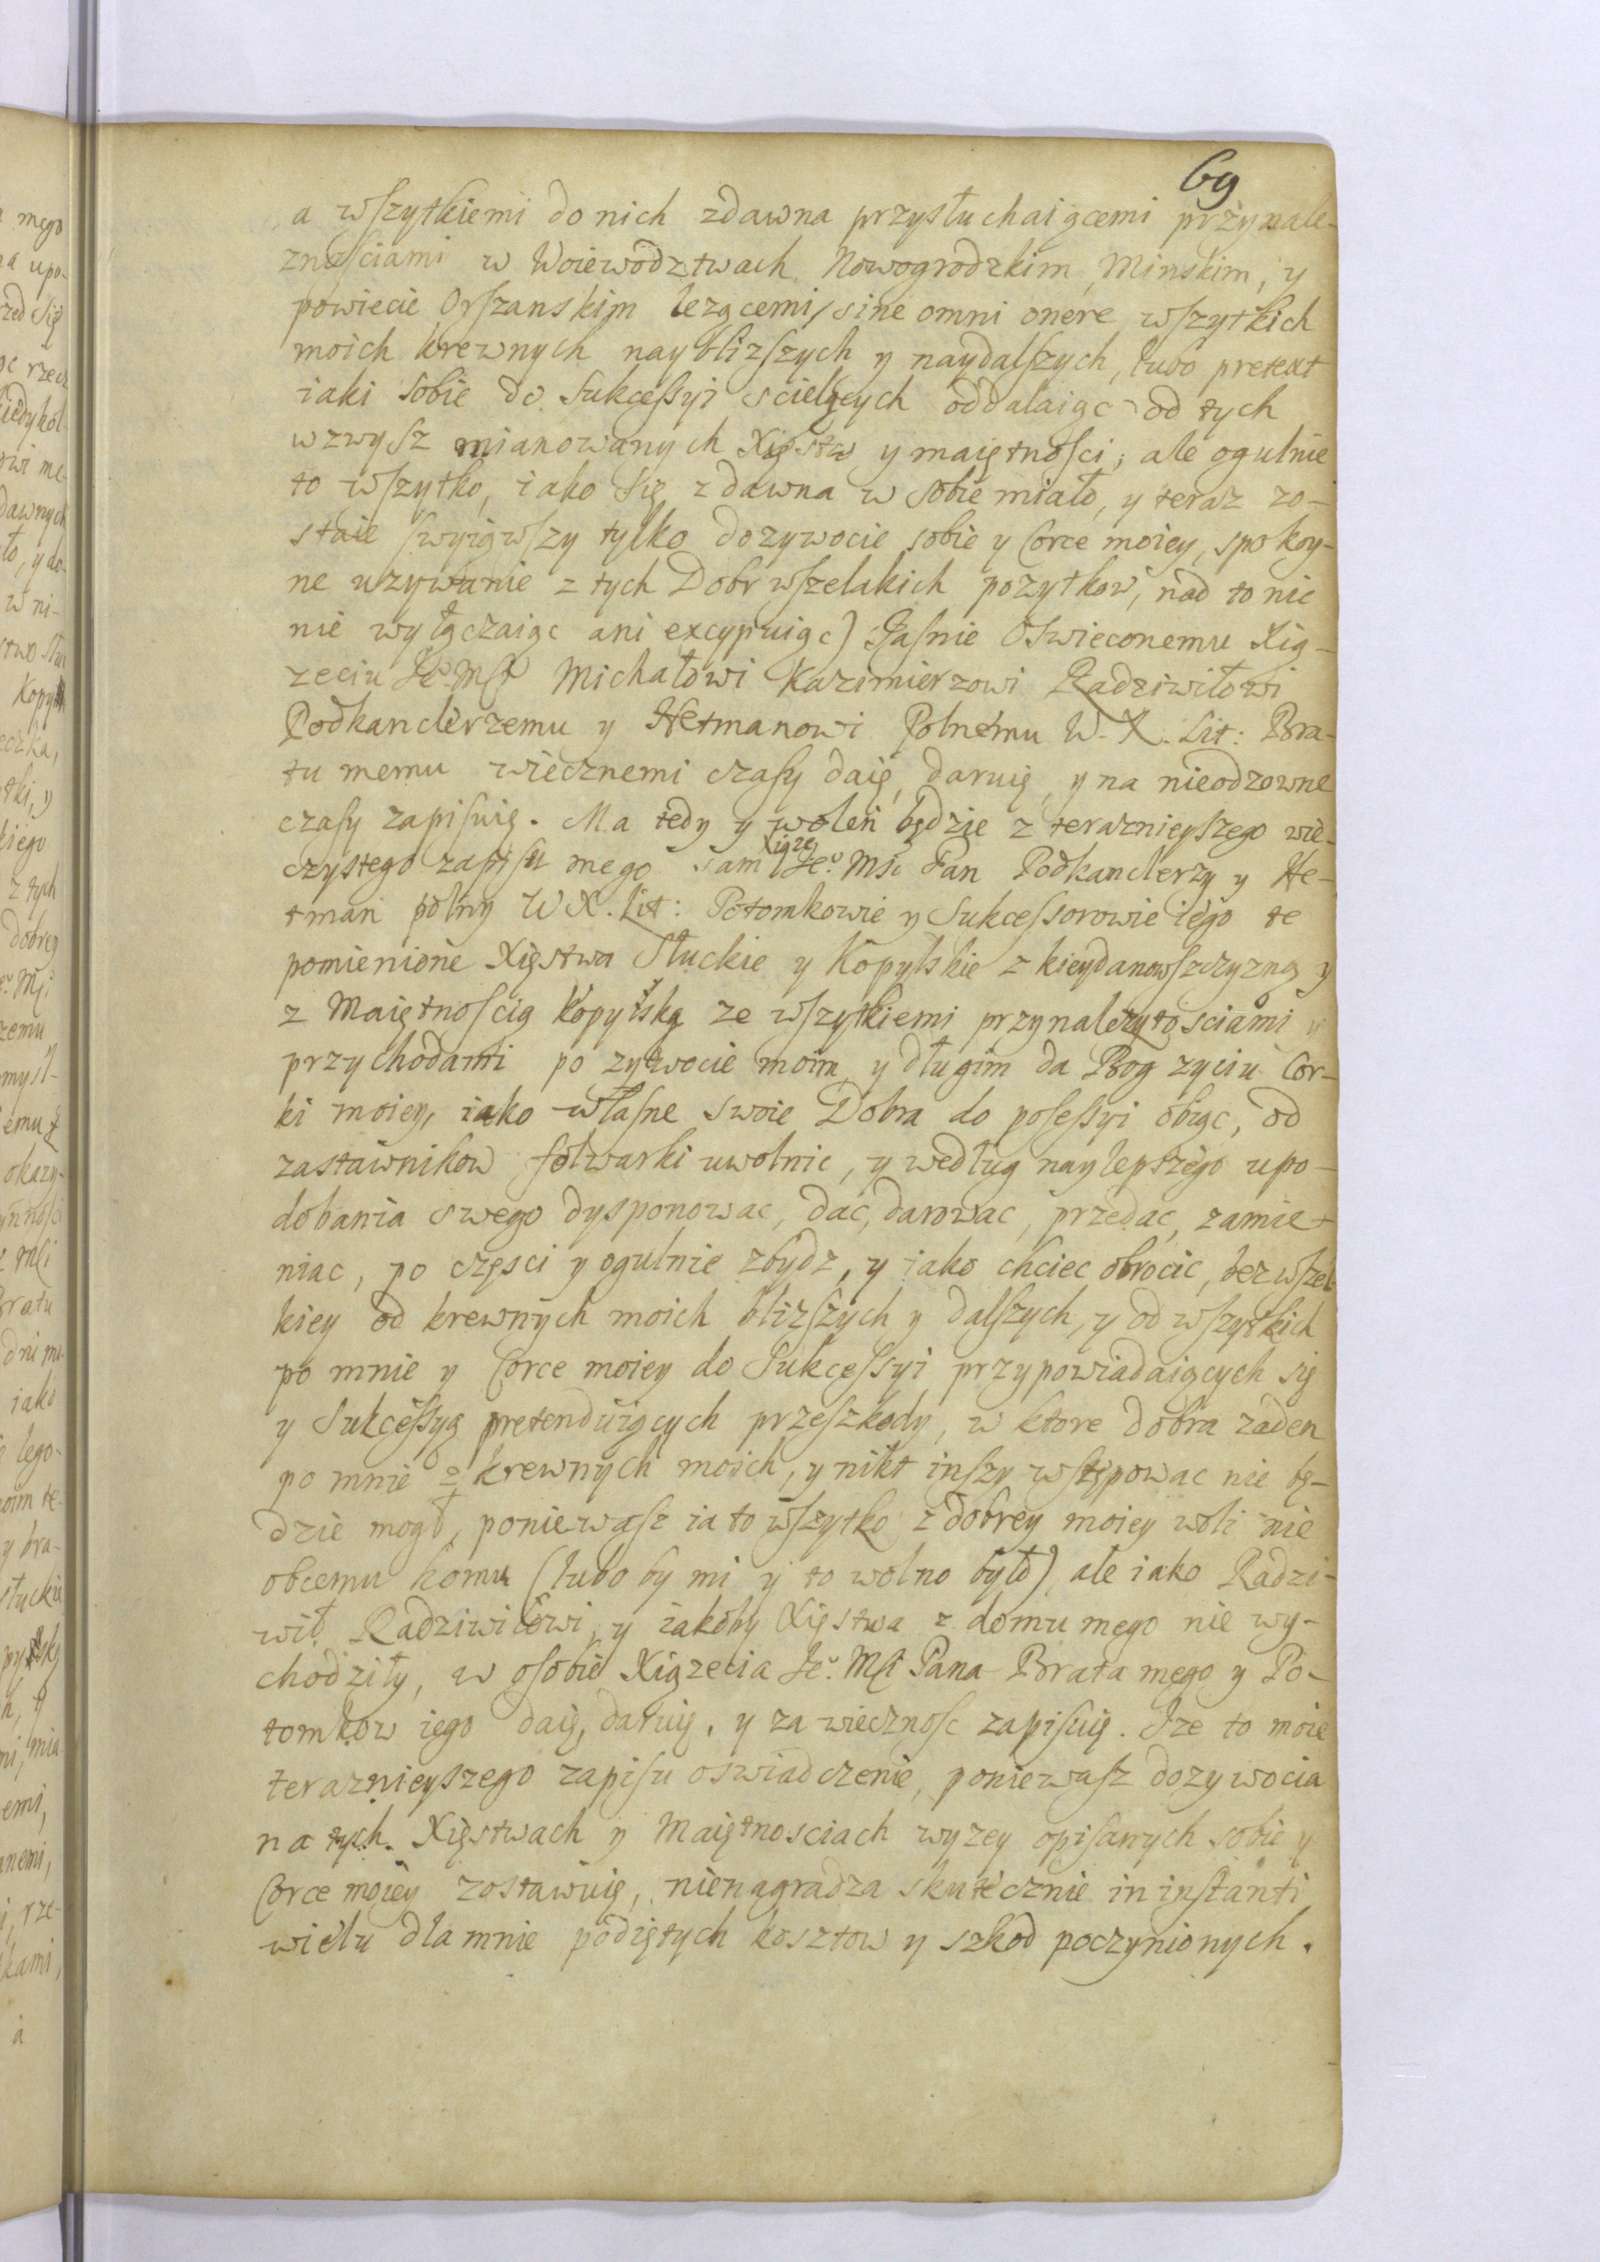 69
a wszytkiemi do nich zdawna przysłuchaiącemi przynale-
znosciami w Woiewodztwach Nowogrodzkim, Minskim, y
powiecie Orszanskim lezącemi, sine omni onere wszytkich
moich krewnych nayblizszych y naydalszych, lubo pretext
iaki sobie do Sukcessyi scielących oddalaiąc od tych
wzwysz mianowanych Xięstw y maiętnosci; ale ogulnie
to wszytko, iako się zdawna w sobie miało, y teraz zo-
staie (wyiąwszy tylko dozywocie sobie y Corce moiey, spokoy-
ne uzywanie z tych Dobr wszelakich pozytkow, nad to nic
nie wyłączaiąc ani excypuiąc) Jasnie Oswieconemu Xią-
zeciu Je<sup>o</sup> Mci Michałowi Kazimierzowi Radziwiłowi
Podkanclerzemu y Hetmanowi Polnemu W. X. Lit: Bra-
tu memu wiecznemi czasy daię, daruię, y na nieodzowne
czasy zapisuię. Ma tedy y wolen będzie z teraznieyszego wie-
czystego zapisu mego sam Xiąze Je<sup>o</sup> Mśc Pan Podkanclerzy y He-
tman polny W X. Lit: Potomkowie y Sukcessorowie iego te
pomienione Xięstwa Słuckie y Kopylskie z kieydanowszczyzną y
z Maiętnoscią Kopyską ze wszytkiemi przynalezytosciami y
przychodami po zywocie moim y długim da Bog zyciu Cor-
ki moiey, iako własne swoie Dobra do posessyi obiąc, od
zastawnikow folwarki uwolnic, y według naylepszego upo-
dobania swego dysponowac, dac, darowac, przedac, zamie-
niac, po częsci y ogulnie zbydz, y iako chciec obrocic, bez wszel-
kiey od krewnych moich blizszych y dalszych, y od wszytkich
po mnie y Corce moiey do Sukcessyi przypowiadaiących się
y Sukcessyą pretenduiących przeszkody, w ktore dobra zaden
po mnie z krewnych moich, y nikt inszy wstępowac nie bę-
dzie mogł, poniewasz ia to wszytko z dobrey moiey woli nie
obcemu komu (lubo by mi y to wolno było) ale iako Radzi-
wił Radziwiłowi, y iakoby Xięstwa z domu mego nie wy-
chodziły, w osobie Xiązecia Je<sup>o</sup> Mci Pana Brata mego y Po-
tomkow iego daię, daruię, y za wiecznosc zapisuię. Ize to moie
teraznieyszego zapisu oswiadczenie, poniewasz dozywocia
na tych Xięstwach y Maiętnosciach wyzey opisanych sobie y
Corce moiey zostawuię, nienagradza skutecznie in instanti
wielu dla mnie podiętych kosztow y szkod poczynionych.